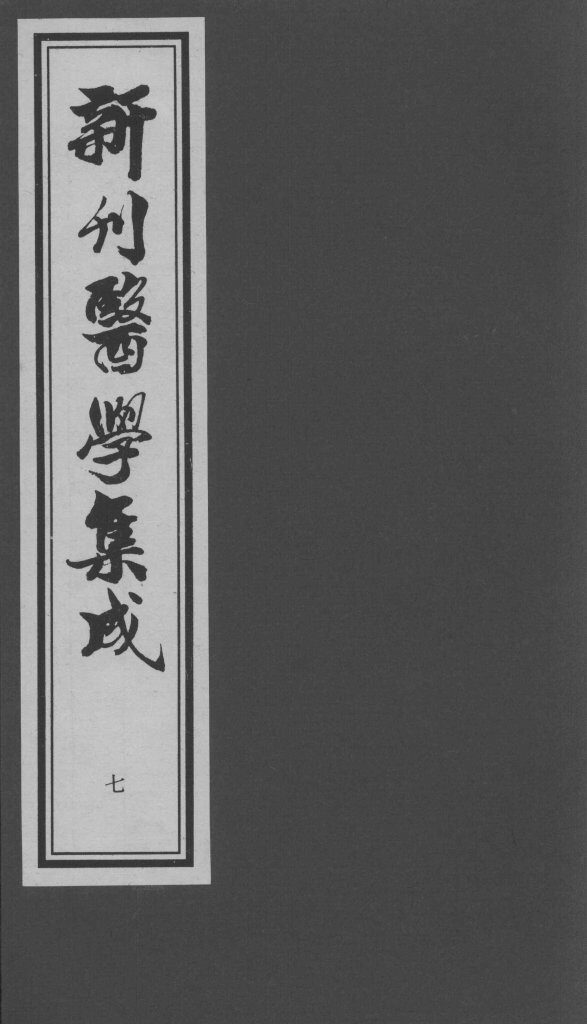 新刊醫學集成
七